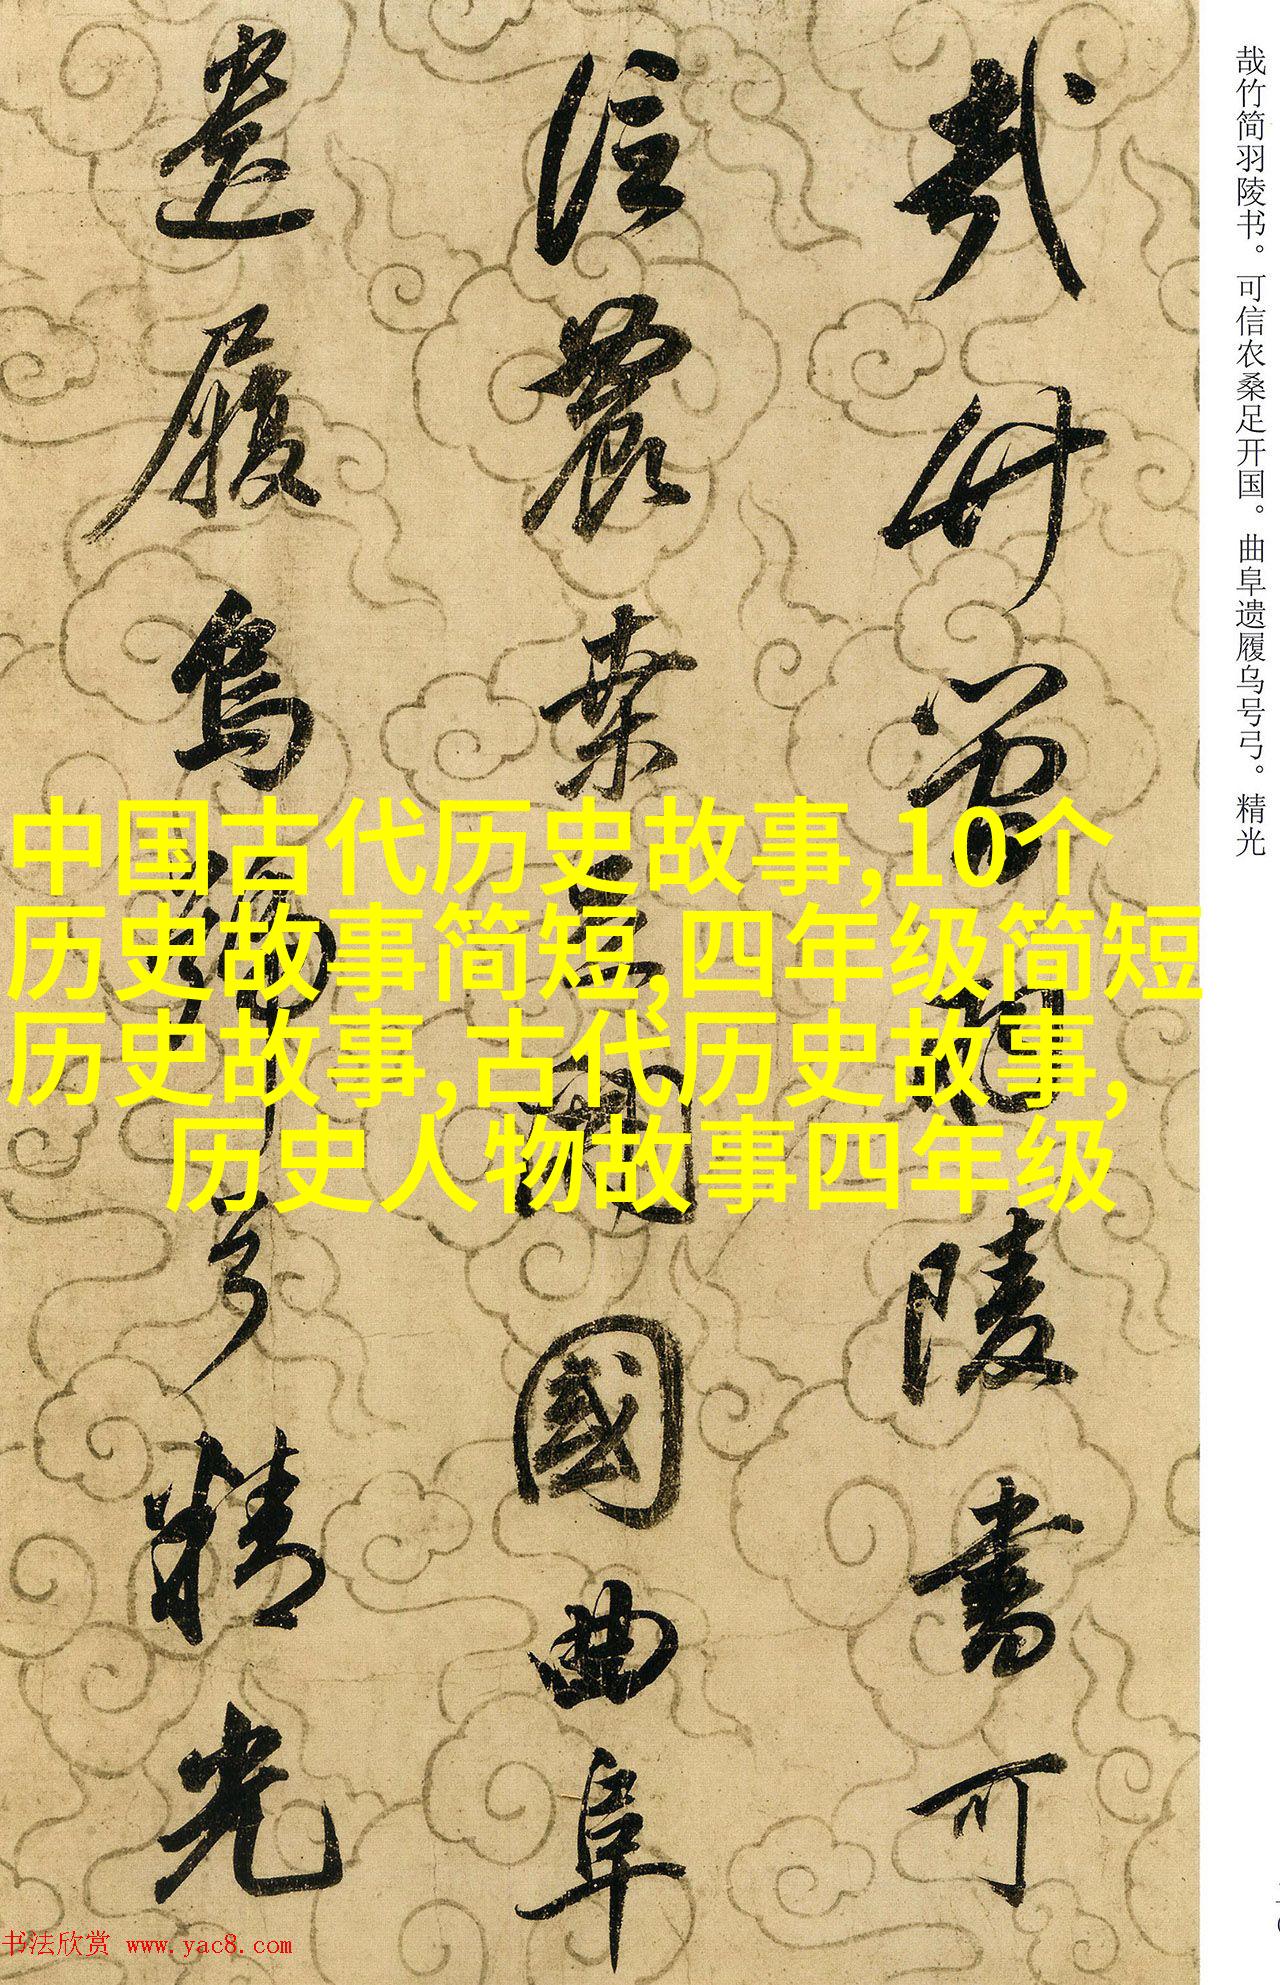 哉竹简羽陵书。可信农桑足开国。曲阜遗履乌号弓。精光
哉竹簡羽陵書可
信農桒足開國曲阜
遺履烏號弓精光
中国古代历史故事,10个
历史故事简短,四年级简短
历史故事,古代历史故事,
历史人物故事四年级
书法欣赏 www.yac8.com